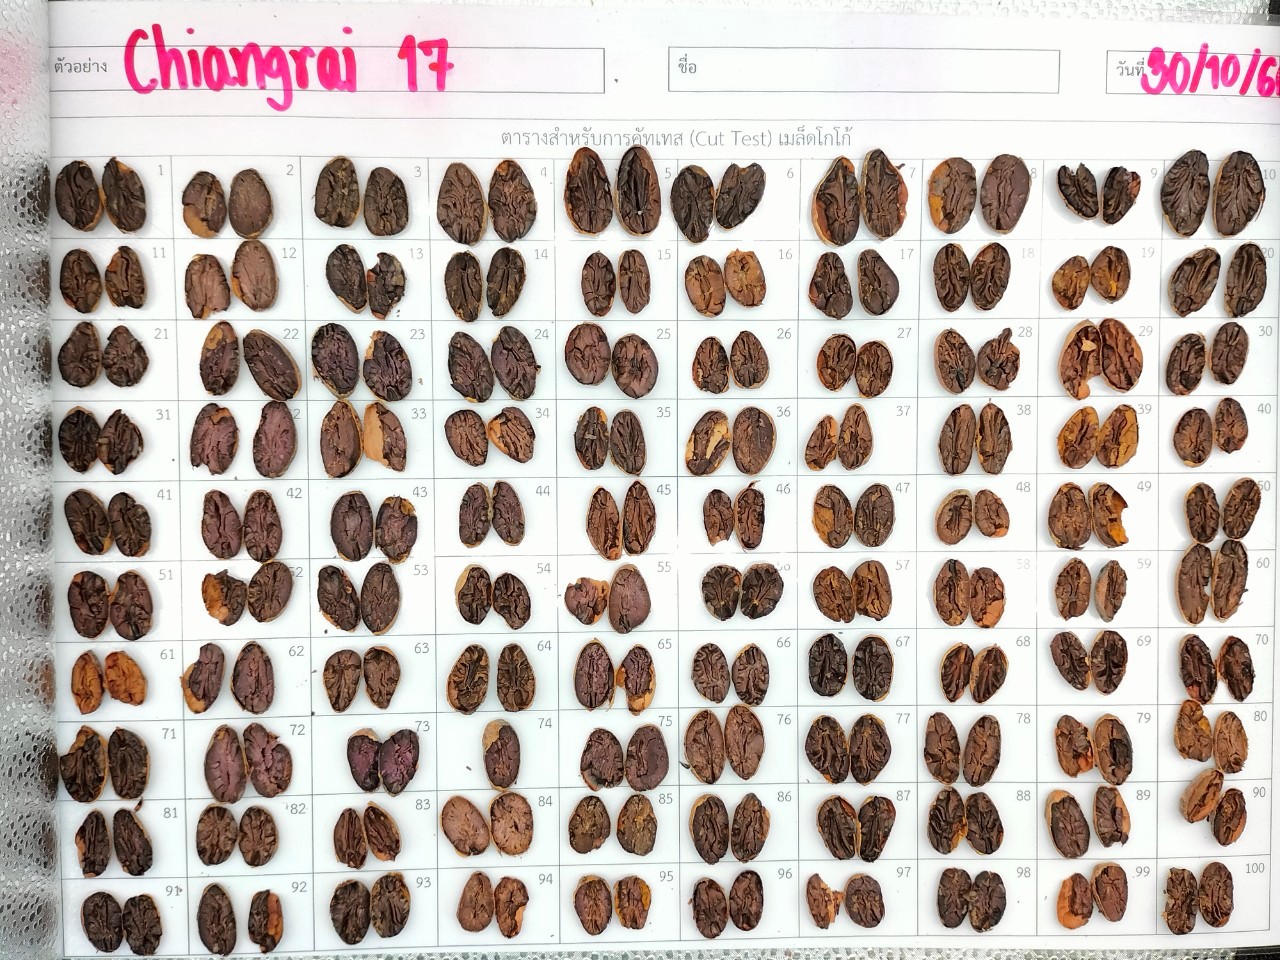 ตัวอย่าง Chiangrai 17 ชื่อ วันที่ 30/10/6
ตารางสำหรับการคัทเทส (Cut Test) เมล็ดโกโก้
1 2 3 4 5 6 7 8 9 10
11 12 13 14 15 16 17 18 19 20
21 22 23 24 25 26 27 28 29 30
31 2 33 34 35 36 37 38 39 40
41 42 43 44 45 46 47 48 49 50
51 52 53 54 55 56 57 58 59 60
61 62 63 64 65 66 67 68 69 70
71 72 73 74 75 76 77 78 79 80
81 82 83 84 85 86 87 88 89 90
91 92 93 94 95 96 97 98 99 100